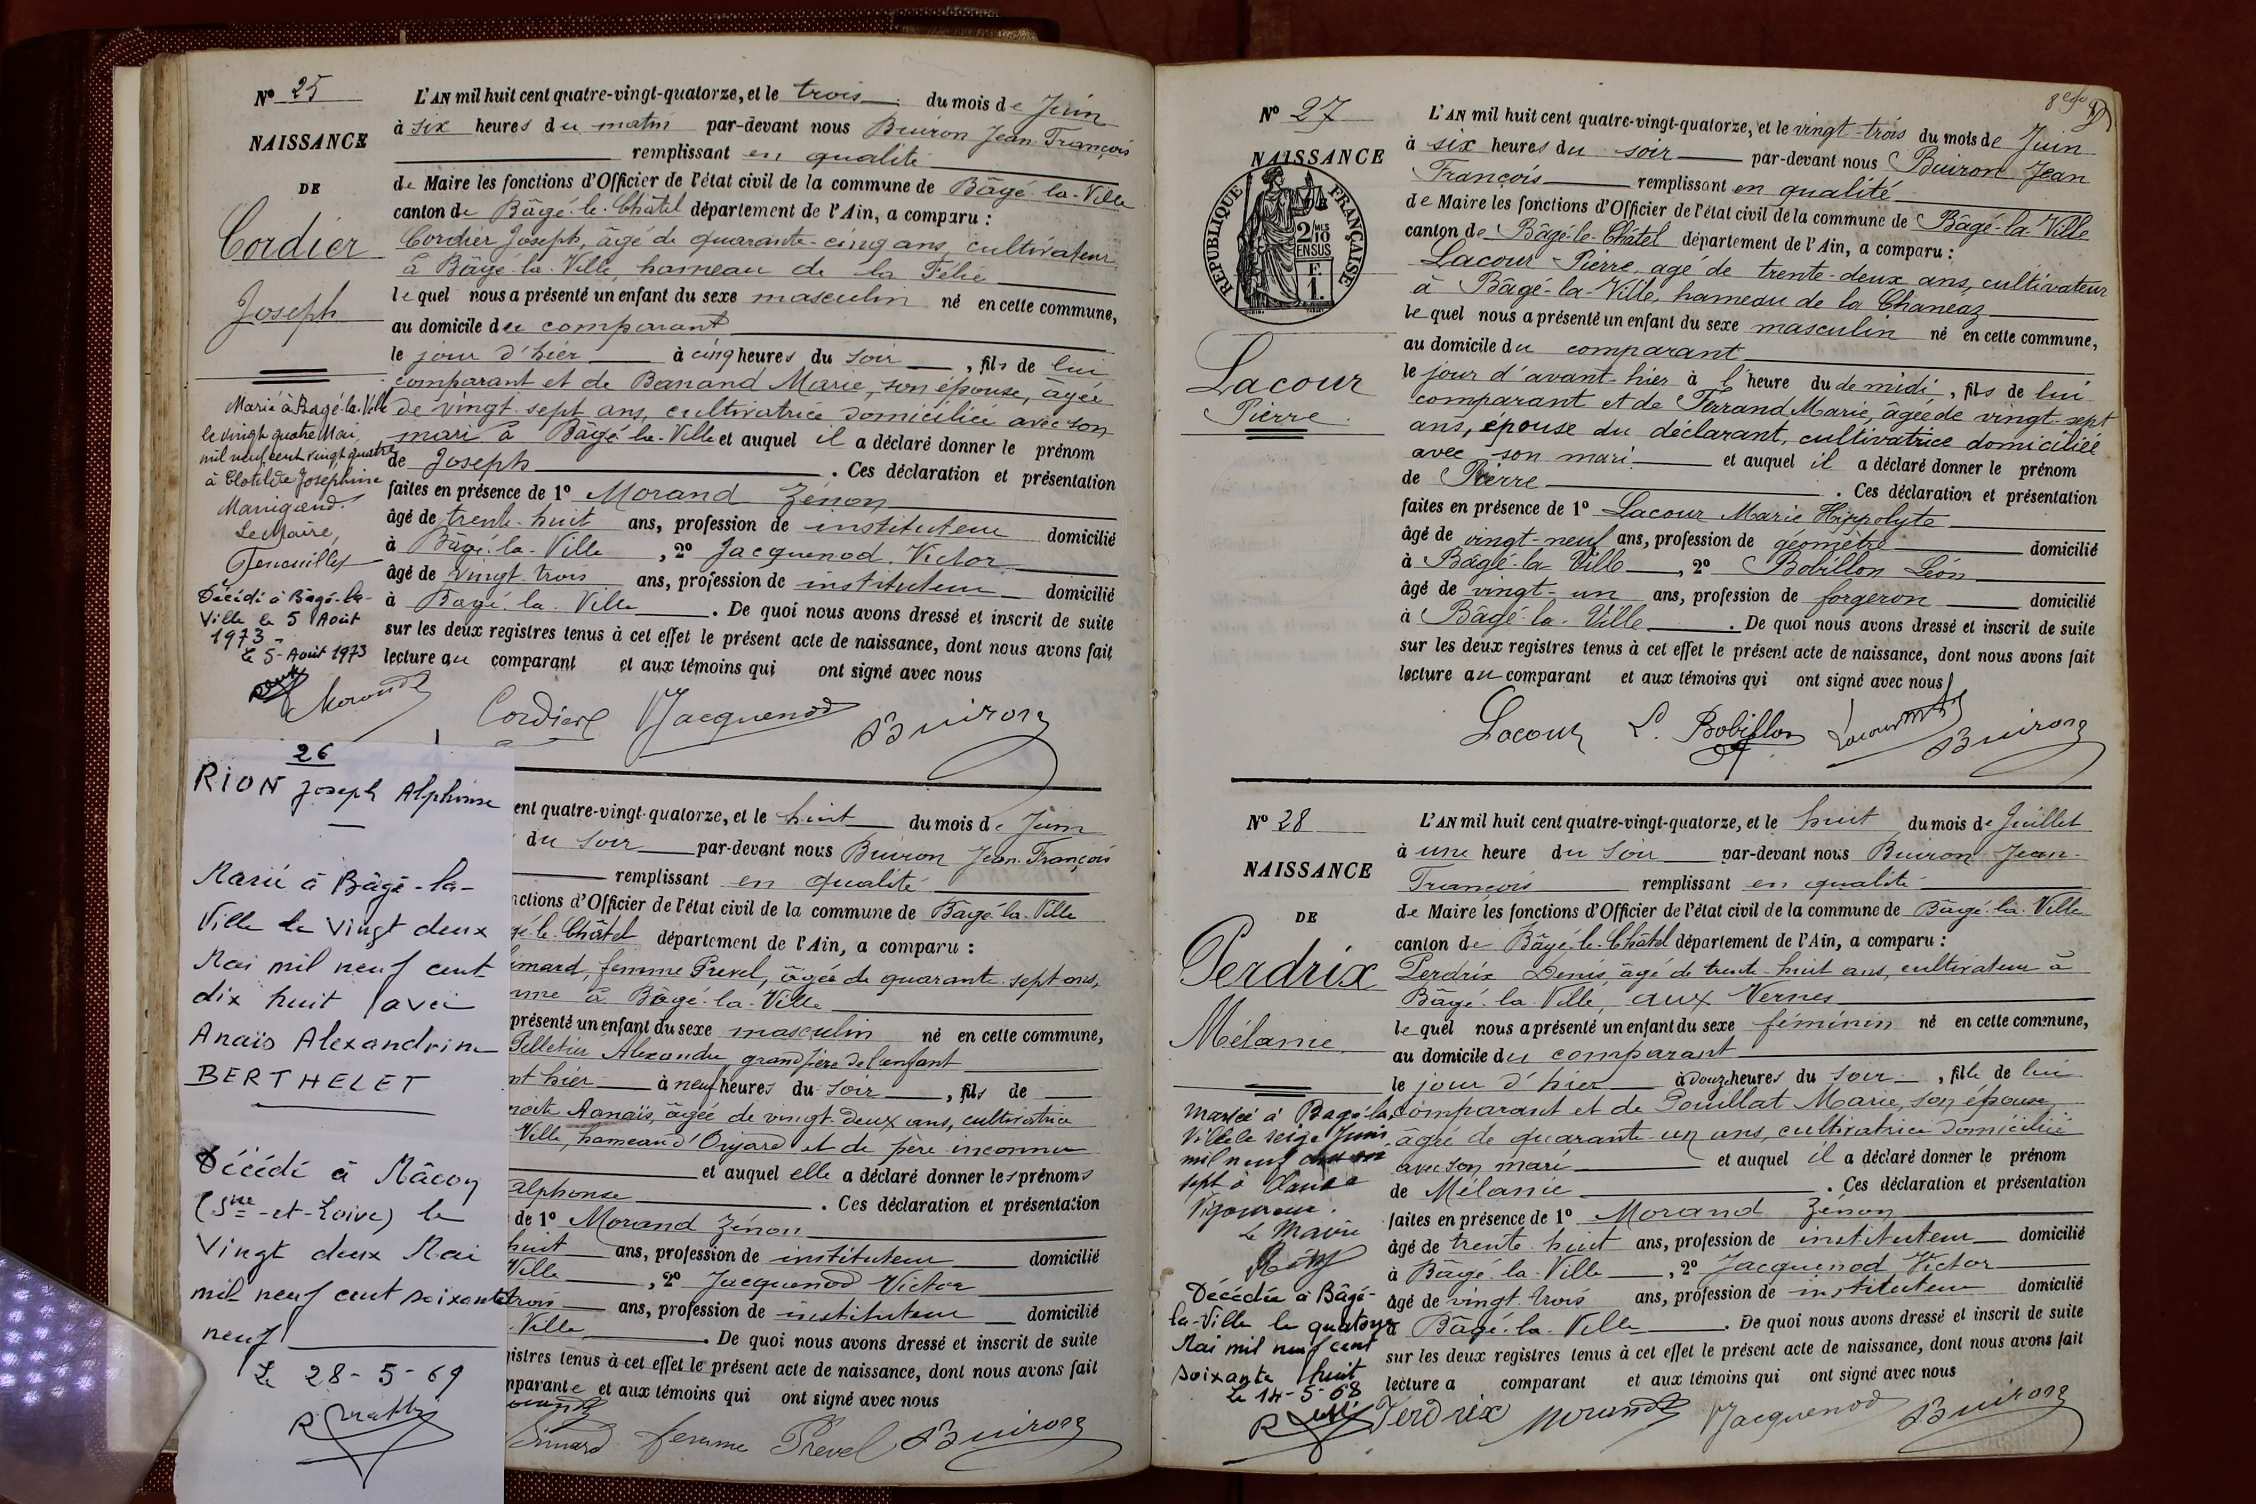 Nº 25
NAISSANCE
DE
Cordier
Joseph
Marié à Bâgé-la-Ville
le vingt quatre Mai
mil neuf cent vingt quatre
à Clotilde Joséphine
Manigand.
Le Maire,
Décédé à Bâgé-la-
Ville le 5 Août
1973-
le 5-Août 1973
L'AN mil huit cent quatre-vingt-quatorze, et le trois du mois de Juin
à six heures du matin par-devant nous Buiron Jean François
remplissant en qualité
de Maire les fonctions d'Officier de l'état civil de la commune de Bâgé-la-Ville
canton de Bâgé-le-Châtel département de l'Ain, a comparu :
Cordier Joseph, âgé de quarante-cinq ans, cultivateur
à Bâgé-la-Ville, hameau de la Félie
lequel nous a présenté un enfant du sexe masculin né en cette commune,
au domicile du comparant
le jour d'hier à cinq heures du soir, fils de lui
comparant et de Banand Marie, son épouse, âgée
de vingt-sept ans, cultivatrice domiciliée avec son
mari à Bâgé-la-Ville et auquel il a déclaré donner le prénom
de Joseph. Ces déclaration et présentation
faites en présence de 1º Morand Zénon
âgé de trente-huit ans, profession de instituteur domicilié
à Bâgé-la-Ville, 2º Jacquenod Victor
âgé de vingt-trois ans, profession de instituteur domicilié
à Bâgé-la-Ville. De quoi nous avons dressé et inscrit de suite
sur les deux registres tenus à cet effet le présent acte de naissance, dont nous avons fait
lecture au comparant et aux témoins qui ont signé avec nous
Morand Cordier Jacquenod Buiron
26
RION Joseph Alphonse
Marié à Bâgé-la-
Ville le vingt deux
Mai mil neuf cent
dix huit avec
Anaïs Alexandrine
BERTHELET
Décédé à Mâcon
(Sne-et-Loire) le
vingt deux Mai
mil neuf cent soixante
neuf
Le 28-5-69
ent quatre-vingt-quatorze, et le huit du mois de Juin
du soir par-devant nous Buiron Jean-François
remplissant en qualité
nctions d'Officier de l'état civil de la commune de Bâgé-la-Ville
gé-le-Châtel département de l'Ain, a comparu :
mard, femme Prevel, âgée de quarante-sept ans,
mme à Bâgé-la-Ville
présenté un enfant du sexe masculin né en cette commune,
Pelletier Alexandre grand père de l'enfant
nt hier à neuf heures du soir, fils de
noite Aanaïs, âgée de vingt-deux ans, cultivatrice
Ville, hameau d' et de père inconnu
et auquel elle a déclaré donner les prénoms
alphonse. Ces déclaration et présentation
de 1º Morand Zénon
huit ans, profession de instituteur domicilié
Ville, 2º Jacquenod Victor
trois ans, profession de instituteur domicilié
Ville. De quoi nous avons dressé et inscrit de suite
gistres tenus à cet effet le présent acte de naissance, dont nous avons fait
mparante et aux témoins qui ont signé avec nous
femme Prevel Buiron
Nº 27
NAISSANCE
RÉPUBLIQUE FRANÇAISE
2 MLS
10
EN SUS
F.
1.
Lacour
Pierre
L'AN mil huit cent quatre-vingt-quatorze, et le vingt-trois du mois de Juin
à six heures du soir par-devant nous Buiron Jean
François remplissant en qualité
de Maire les fonctions d'Officier de l'état civil de la commune de Bâgé-la-Ville
canton de Bâgé-le-Châtel département de l'Ain, a comparu :
Lacour Pierre, agé de trente-deux ans, cultivateur
à Bâgé-la-Ville, hameau de la Chanéaz
lequel nous a présenté un enfant du sexe masculin né en cette commune,
au domicile du comparant
le jour d'avant-hier à l'heure du de midi, fils de lui
comparant et de Ferrand Marie, âgée de vingt-sept
ans, épouse du déclarant, cultivatrice domiciliée
avec son mari et auquel il a déclaré donner le prénom
de Pierre. Ces déclaration et présentation
faites en présence de 1º Lacour Marie Hippolyte
âgé de vingt-neuf ans, profession de géomètre domicilié
à Bâgé-la-Ville, 2º Bobillon Léon
âgé de vingt-un ans, profession de forgeron domicilié
à Bâgé-la-Ville. De quoi nous avons dressé et inscrit de suite
sur les deux registres tenus à cet effet le présent acte de naissance, dont nous avons fait
lecture au comparant et aux témoins qui ont signé avec nous
Lacour L. Bobillon Lacour Buiron
Nº 28
NAISSANCE
DE
Perdrix
Mélanie
Mariée à Bagé-la-
Ville le seize Juin
mil neuf
sept à Claude
Vigoureux.
Le Maire
Décédée à Bâgé-
la-Ville le quatorze
Mai mil neuf cent
soixante huit
Le 14-5-68
L'AN mil huit cent quatre-vingt-quatorze, et le huit du mois de Juillet
à une heure du soir par-devant nous Buiron Jean-
François remplissant en qualité
de Maire les fonctions d'Officier de l'état civil de la commune de Bâgé-la-Ville
canton de Bâgé-le-Châtel département de l'Ain, a comparu :
Perdrix Denis, âgé de trente-huit ans, cultivateur à
Bâgé-la-Ville, aux Vernes
lequel nous a présenté un enfant du sexe féminin né en cette commune,
au domicile du comparant
le jour d'hier à douze heures du soir, fille de lui
comparant et de Pouillat Marie, son épouse,
âgée de quarante-un ans, cultivatrice domiciliée
avec son mari et auquel il a déclaré donner le prénom
de Mélanie. Ces déclaration et présentation
faites en présence de 1º Morand Zénon
âgé de trente-huit ans, profession de instituteur domicilié
à Bâgé-la-Ville, 2º Jacquenod Victor
âgé de vingt-trois ans, profession de instituteur domicilié
à Bâgé-la-Ville. De quoi nous avons dressé et inscrit de suite
sur les deux registres tenus à cet effet le présent acte de naissance, dont nous avons fait
lecture a comparant et aux témoins qui ont signé avec nous
Perdrix Morand Jacquenod Buiron